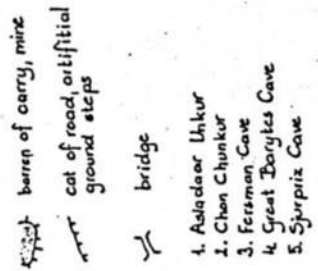 barren of carry, mine
cat of road, artifitial
ground steps
bridge
1. Asladaar Unkur
2. Chon Chunkur
3. Fersman Cave
4. Great Barytes Cave
5. Sjurpriz Cave